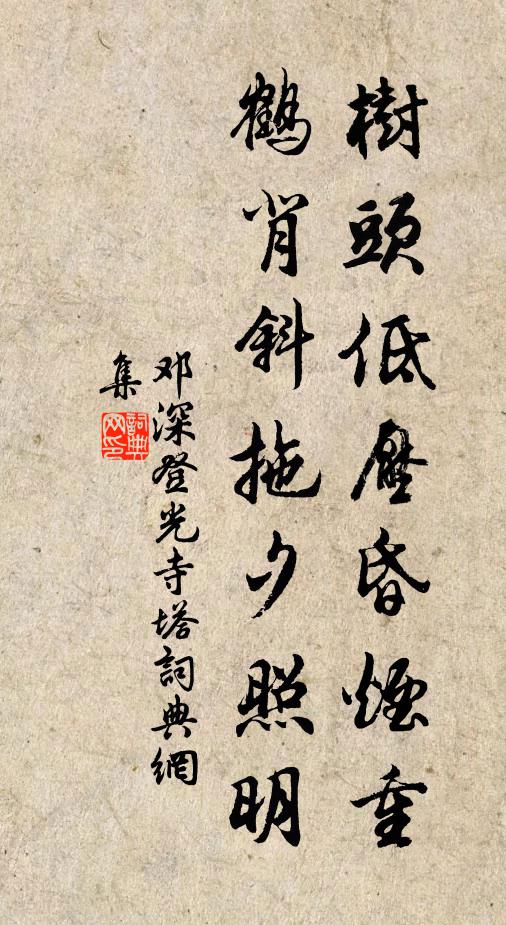 樹頭低壓昏煙重
鶴背斜拖夕照明
邓深登光寺塔詞典網
集
詞典
网印